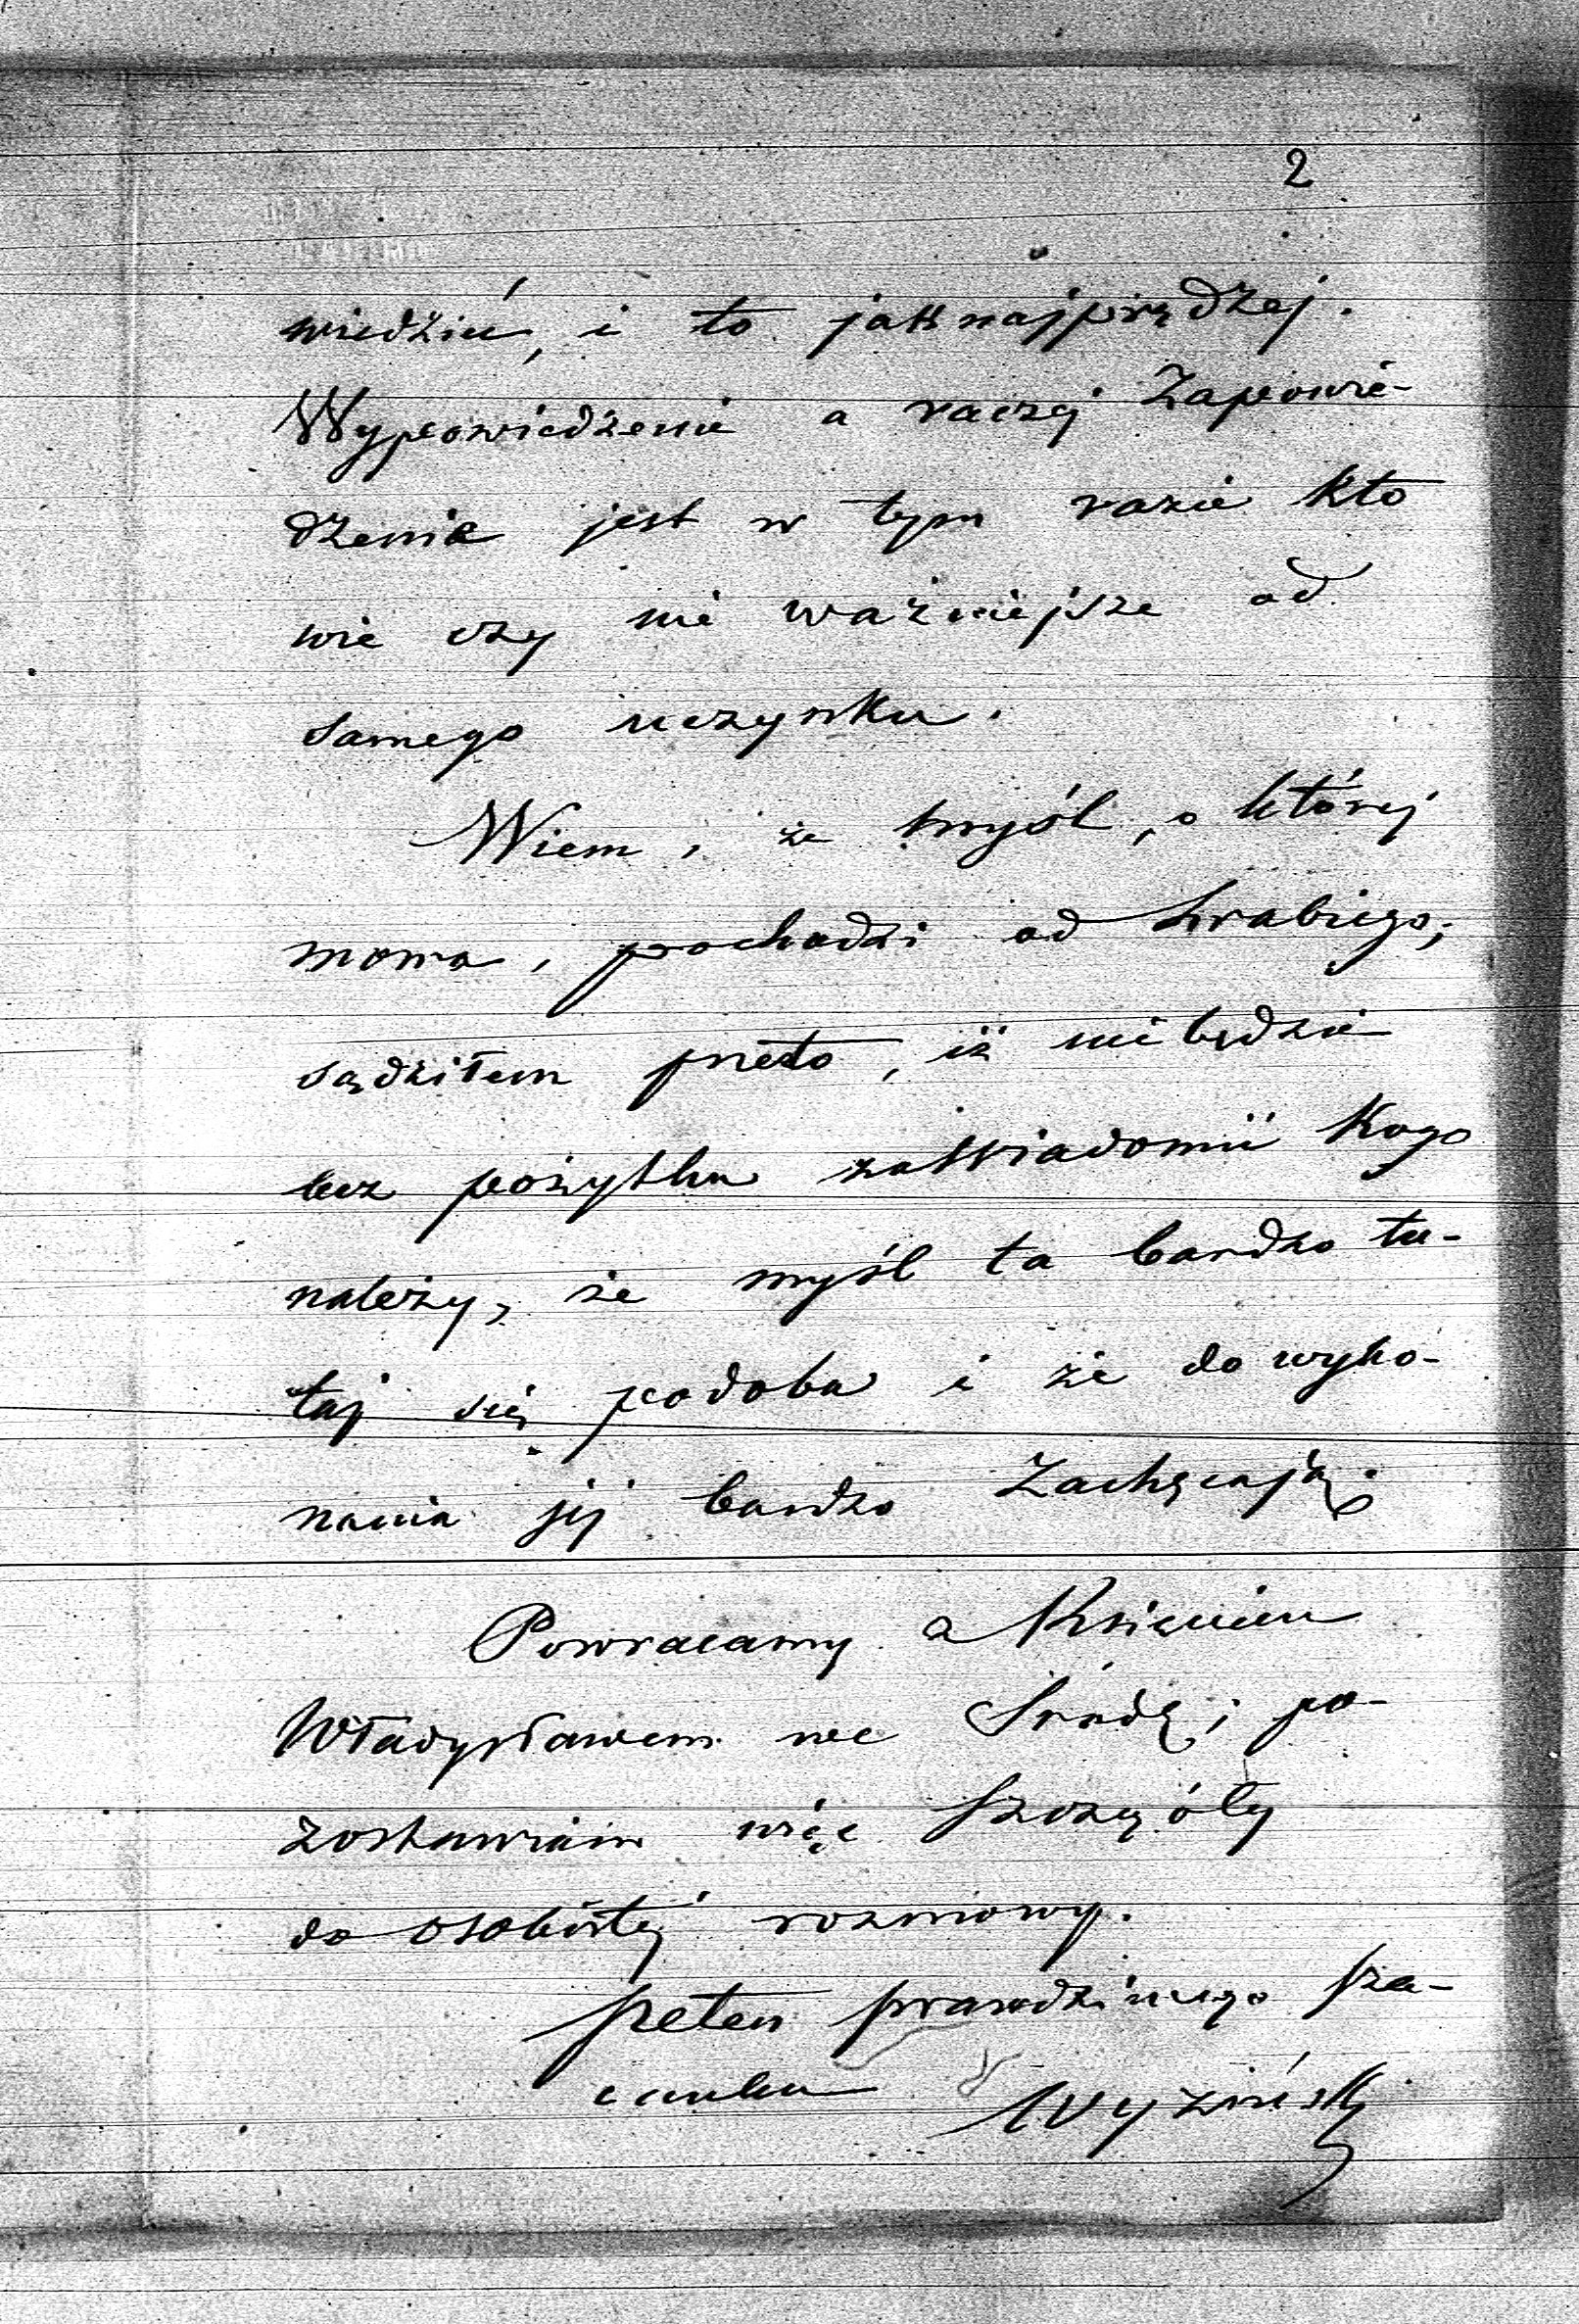 2
wiedzieć, i to jak najprędzej.
Wypowiedzenie a raczej Zapowie-
dzenie jest w tym razie kto
wie czy nie ważniejsze od
samego uczynku.
Wiem, że myśl, o której
mowa, pochodzi od Hrabiego;
sądziłem przeto, iż nie będzie
bez pożytku zawiadomić Kogo
należy, że myśl ta bardzo tu-
taj się podoba i że do wyko-
nania jej bardzo Zachęcają.
Powracamy z Księciem
Władysławem we Środę; po-
zostawiam więc szczegóły
do osobistej rozmowy.
pełen prawdziwego sza-
cunku Wyziński